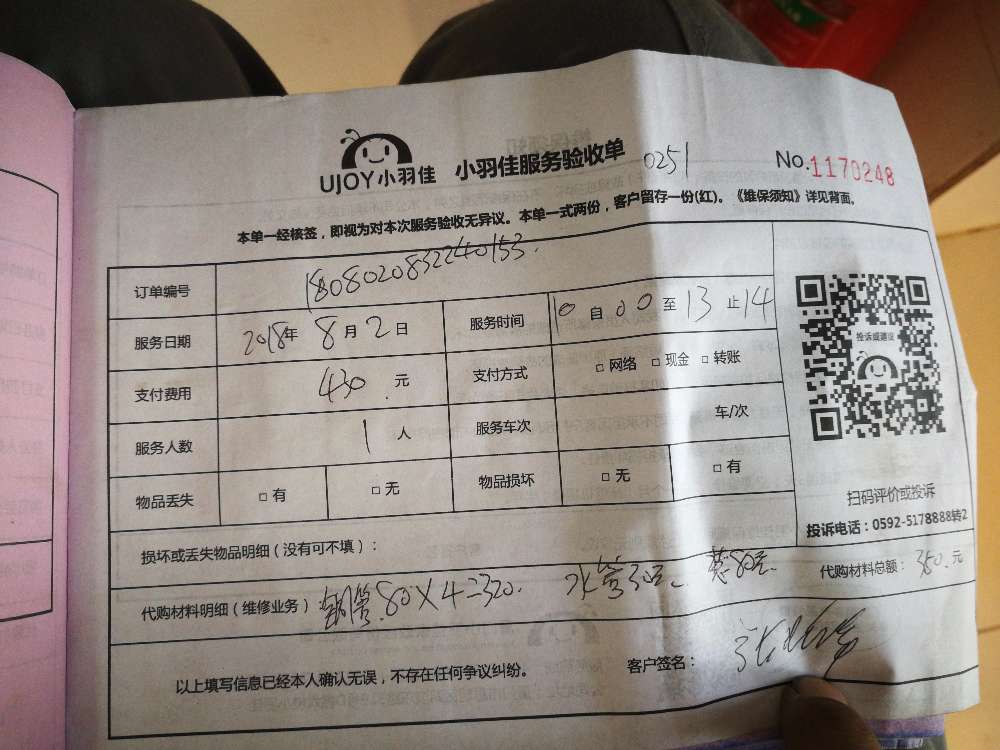 UJOY小羽佳 小羽佳服务验收单 0251 No.1170248
本单一经核签，即视为对本次服务验收无异议。本单一式两份，客户留存一份(红)。《维保须知》详见背面。
订单编号 1808020832240153.
服务日期 2018年 8月 2日 服务时间 10自00至13止14
支付费用 430.元 支付方式 □网络 □现金 □转账
服务人数 1人 服务车次 车/次
物品丢失 □有 □无 物品损坏 □无 □有
投诉或建议
扫码评价或投诉
投诉电话：0592-5178888转2
损坏或丢失物品明细（没有可不填）：
代购材料明细（维修业务） 钢管.80×4=320. 水管30元. 80元. 代购材料总额：350.元
以上填写信息已经本人确认无误，不存在任何争议纠纷。 客户签名：